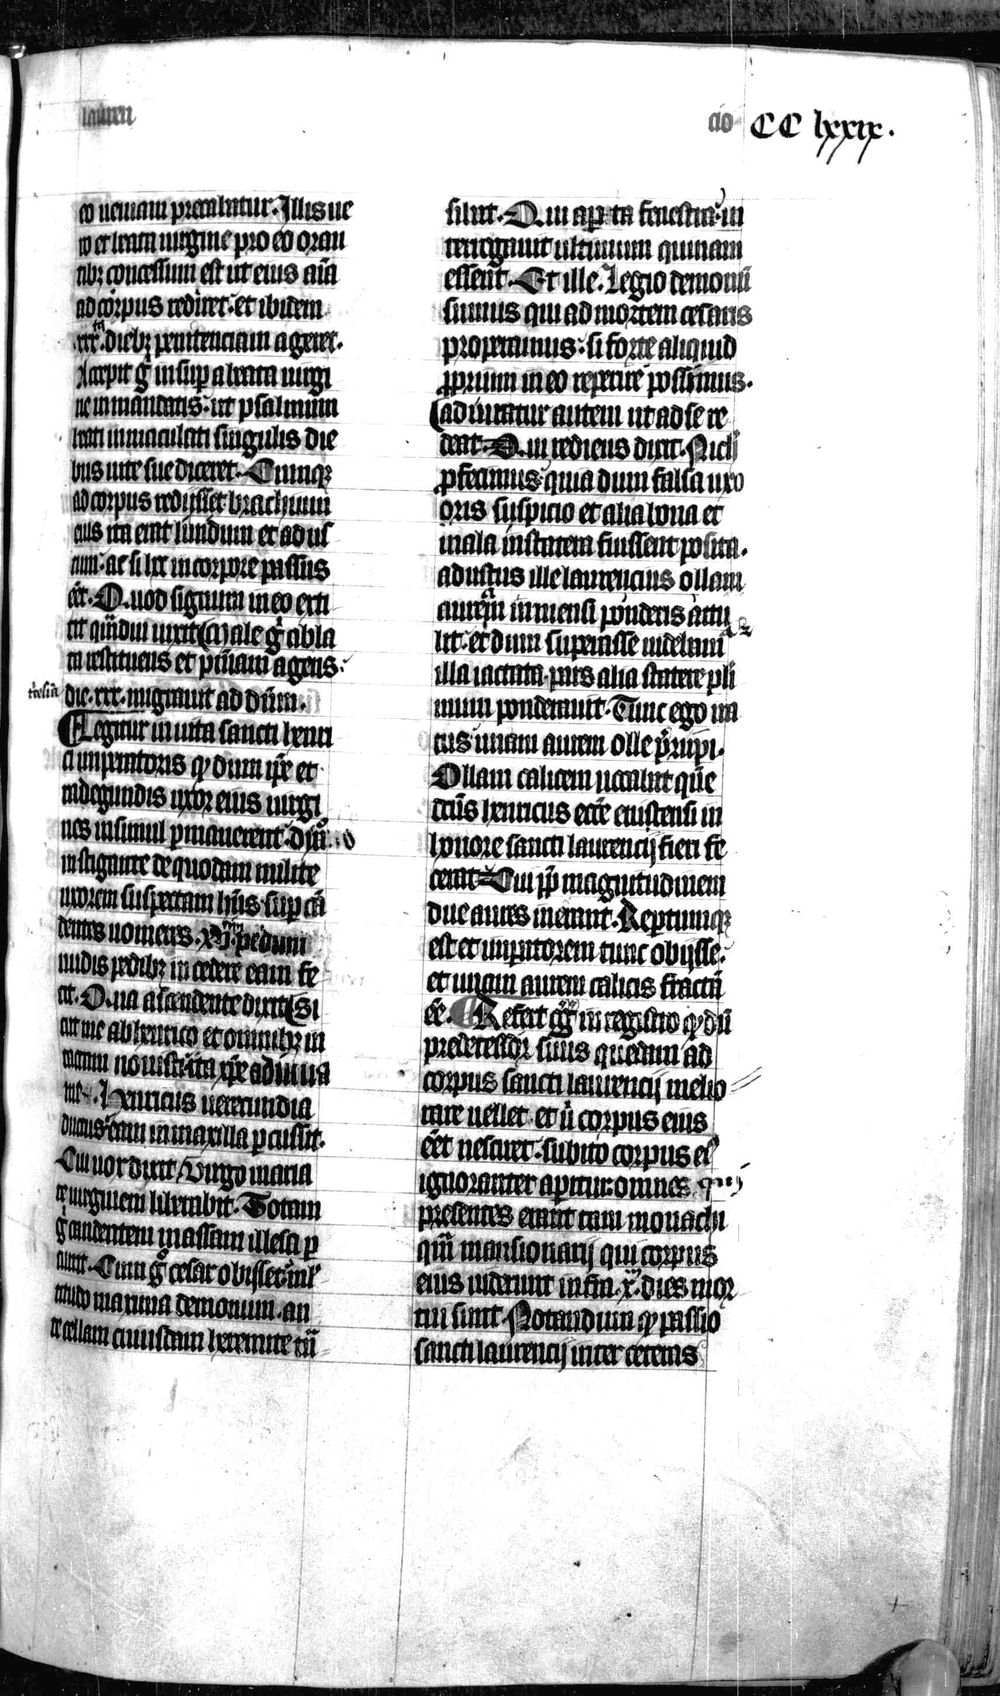 lauren
cio CC lxxix.
eo ueniam precabatur. Illis ue
ro et beata uirgine pro eo oran
tibꝫ concessum est ut eius aīa
ad corpus rediret. et ibidem
.xxx.ta diebꝫ penitenciam ageret.
Accepit g̊ insuꝑ a beata uirgi
ne in mandatis. ut psalmum
beati inmaculati singulis die
bus uite sue diceret. Cumqꝫ
ad corpus redijsset brachium
eius ita erat liuidum et adus
tum. ac si hꝛ in corpore passus
eēt. Quod signum in eo exti
tit quādiu uixit Male g̊ abla
ta restituens et pn̄iam agens.
die .xxx. migrauit ad dn̄m.
Legitur in uita sancti henri
ci imperatoris ꝙ dum ip̄e et
radegundis uxor eius uirgi
nes insimul ꝑmanerent. dyab
instigante de quodam milite
uxorem suspectam hn̄s. suꝑ cā
dentes uomeres .xv. pedum
nudis pedibꝫ incedere eam fe
cit. Qua ascendente dixit Si
cut me ab henrico et omnibꝫ in
tactam nouisti. ita xp̄e adiuua
me. Henricus uerecundia
ductus eam in maxilla ꝑcussit.
Cui uox dixit Virgo maria
te uirginem liberabit. Totam
g̊ candentem massam illesa ꝑ
ansiit. Cum g̊ cesar obisset. ml̓
titudo maxima demonum. an
te cellam cuiusdam heremite tn̄
sibat. Qui aꝑta fenestra. in
terrogauit ultimum quinam
essent. Et ille. Legio demonū
sumus qui ad mortem cesaris
properamus. si forte aliquid
ꝓprium in eo reperire possimus.
adiuratur autem ut ad se re
deat. Qui rediens dixit. Nichil
ꝓfecimus. quia dum falsa uxo
oris suspicio et alia bona et
mala in statera fuissent posita.
adustus ille laurencius ollam
auream inmensi ponderis attu
lit. et dum superasse uidebam̄
illa iactata. pars alia statere pli
mum ponderauit. Tunc ego ira
tus unam aurem olle p̄rupi.
Ollam calicem uocabat quē
dc̄us henricus ecc̄e eustensi in
honore sancti laurencij fieri fe
cerat. Cui ꝓpter magnitudinem
due aures inerant. Reptumqꝫ
est et imperatorem tunc obijsse.
et unam aurem calicis fractā
eē. Refert gg̊ in registro ꝙ dū
predecessor suus quedam ad
corpus sancti laurencij melio
rare uellet. et ubi corpus eius
eēt nesciret. subito corpus ei̓
ignoranter aperitur. omnes qui
presentes erant tam monachi
quā mansionarij qui corpus
eius uiderunt infra .x. dies mor
tui sunt. Notandum ꝙ passio
sancti laurencij inter ceteras